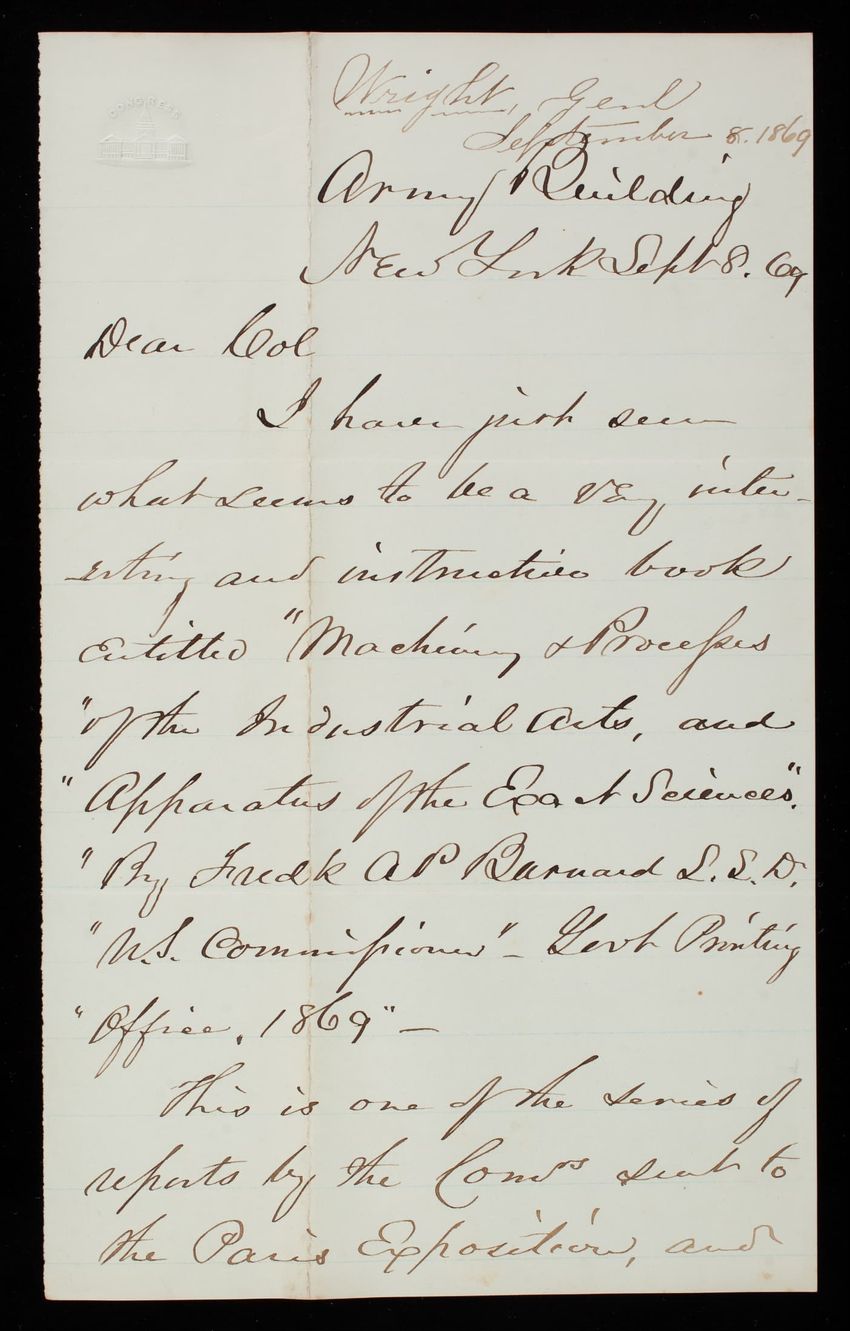 CONGRESS
Wright, Genl
September 8. 1869
Army Building
New York Sept 8. 69
Dear Col
I have just seen
what seems to be a very inter-
esting and instructive book
entitled "Machinery & Processes
"of the Industrial Arts, and
"Apparatus of the Exact Sciences".
"By Fredk A P Barnard L. L. D.
"U.S. Commissioner" - Govt Printing
"Office, 1869" -
This is one of the series of
reports by the Comrs sent to
the Paris Exposition, and